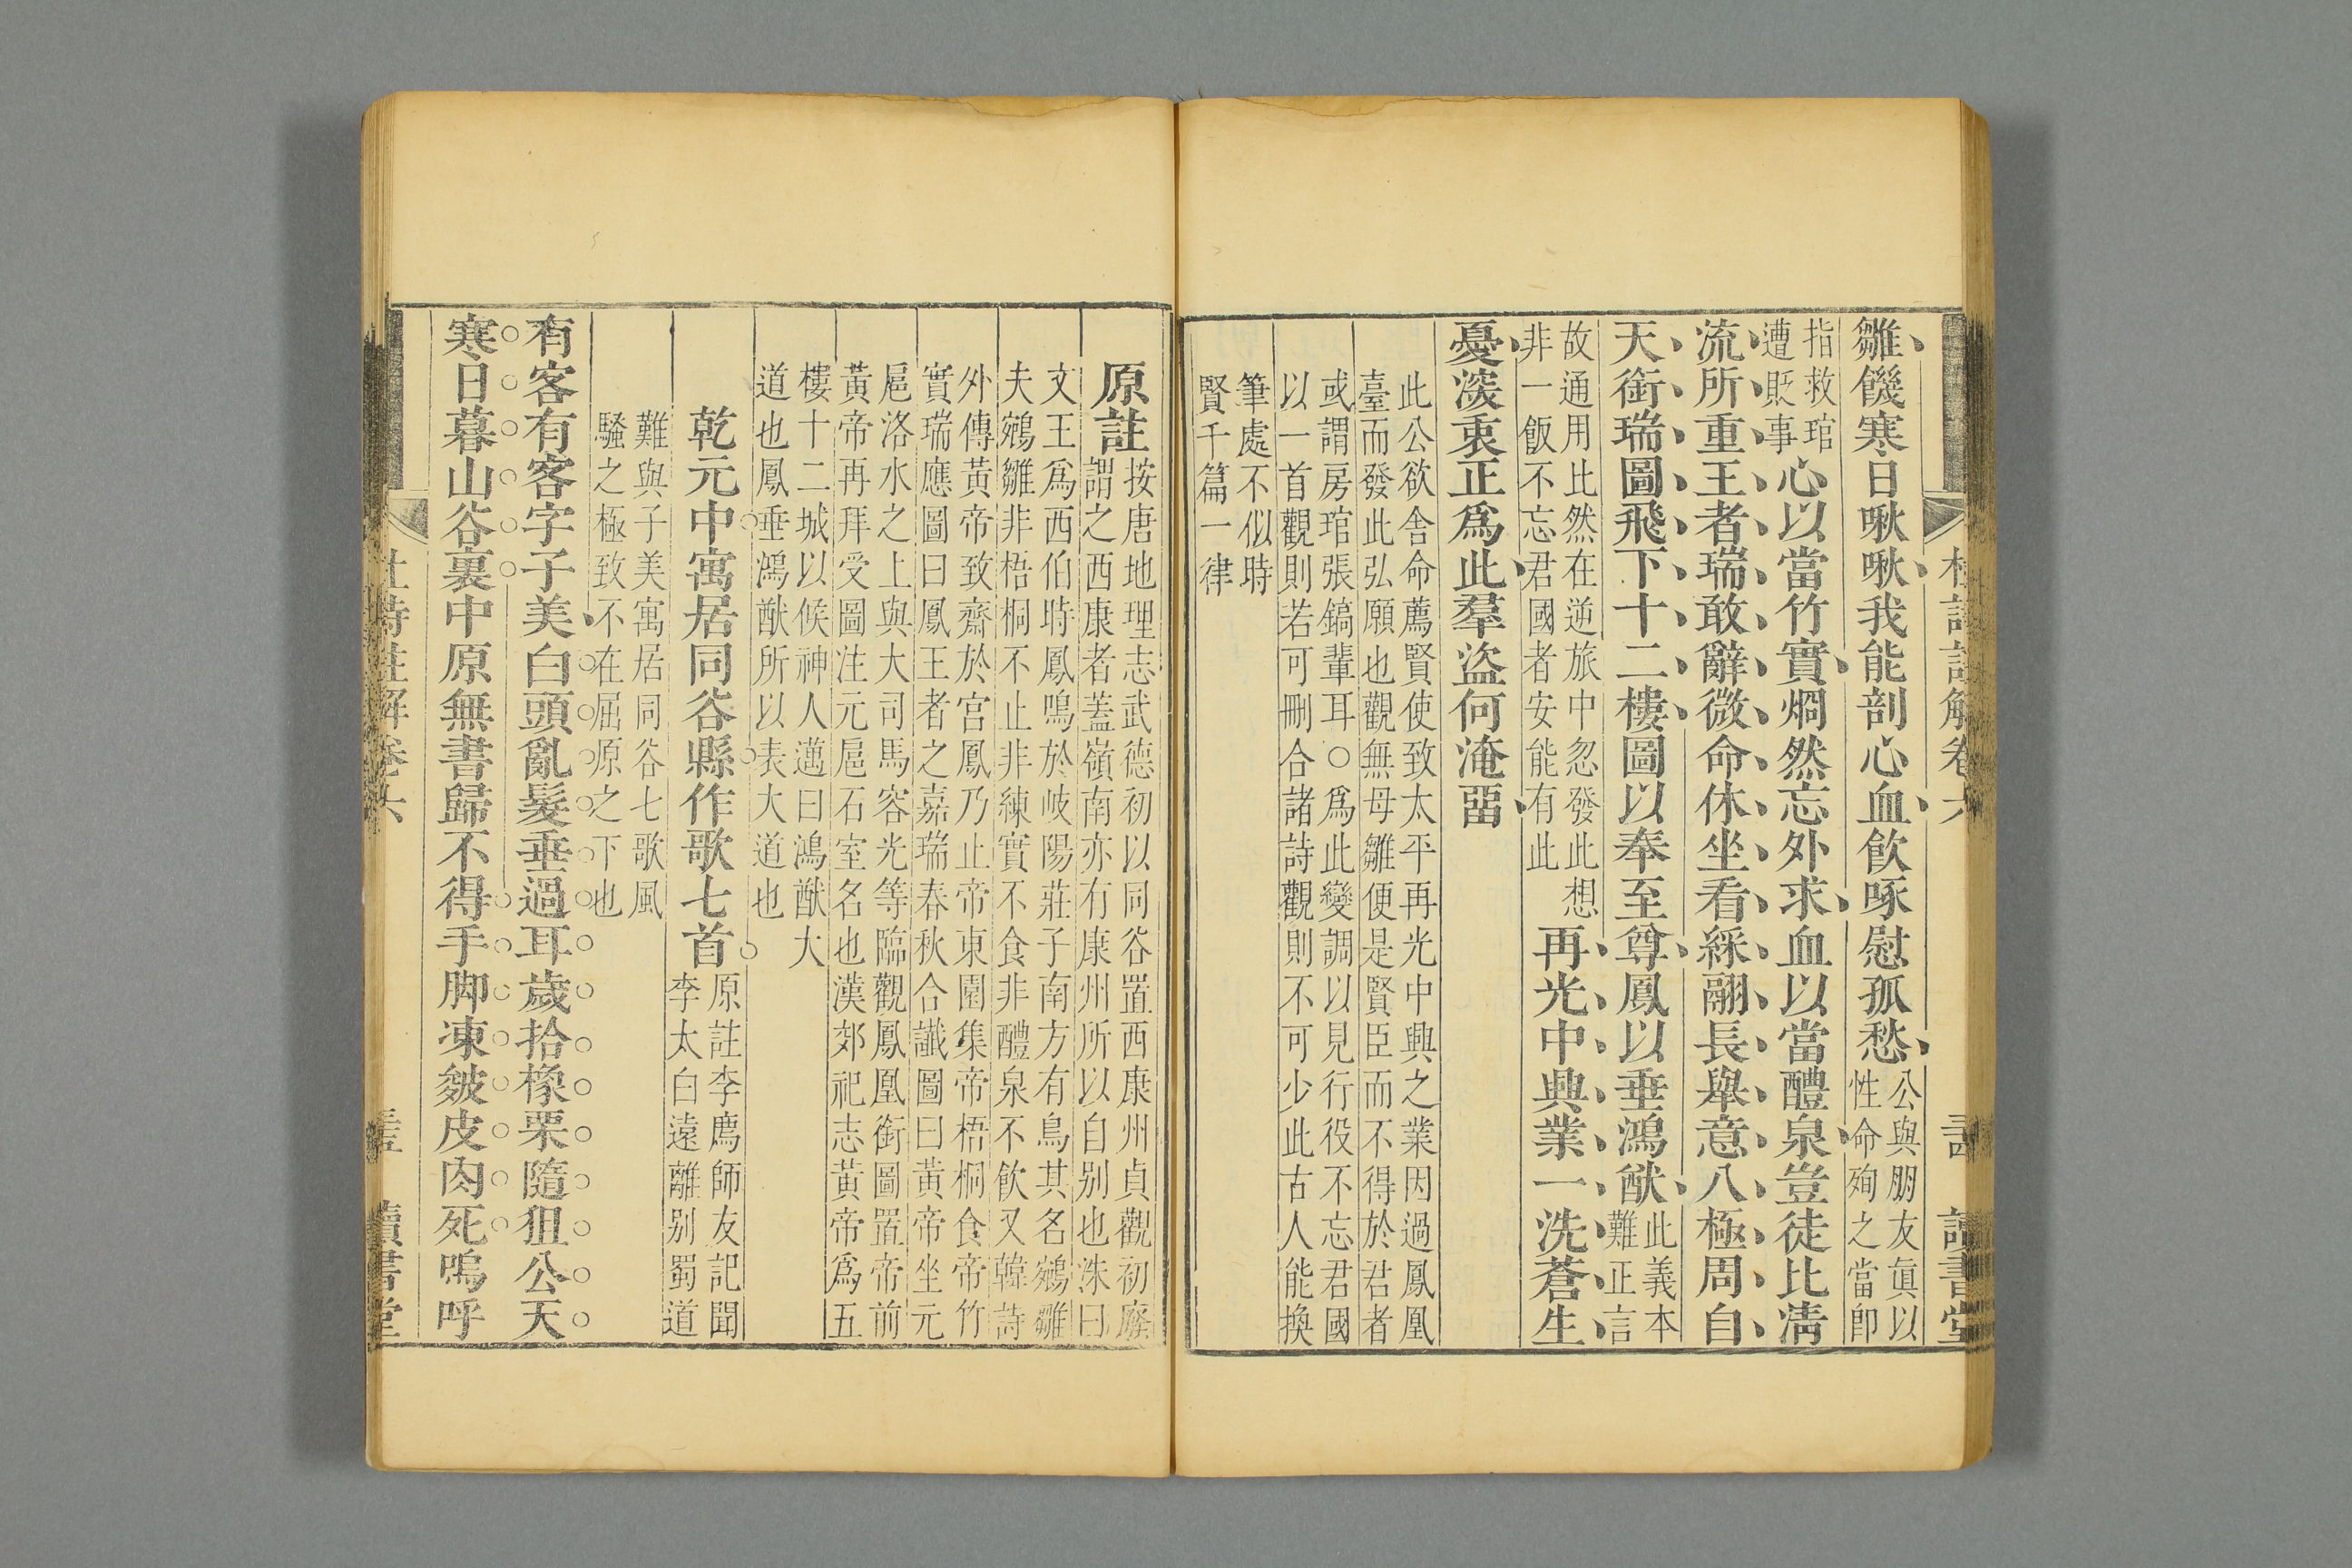 雛饑寒日啾啾我能剖心血飲啄慰孤愁公與朋友眞以
性命殉之當卽
指救琯
遭貶事心以當竹實烱然忘外求血以當醴泉豈徒比淸
流所重王者瑞敢辭微命休坐看綵翮長舉意八極周自
天銜瑞圖飛下十二樓圖以奉至尊鳳以垂鴻猷此義本
難正言
故通用比然在逆旅中忽發此想
非一飯不忘君國者安能有此再光中興業一洗蒼生
憂深衷正爲此羣盜何淹留
此公欲舍命薦賢使致太平再光中興之業因過鳳凰
臺而發此弘願也觀無母雛便是賢臣而不得於君者
或謂房琯張鎬輩耳○爲此變調以見行役不忘君國
以一首觀則若可刪合諸詩觀則不可少此古人能換
筆處不似時
賢千篇一律
原註按唐地理志武德初以同谷置西康州貞觀初廢
謂之西康者蓋嶺南亦有康州所以自别也洙曰
文王爲西伯時鳳鳴於岐陽莊子南方有鳥其名鵷雛
夫鵷雛非梧桐不止非練實不食非醴泉不飲又韓詩
外傳黃帝致齋於宮鳳乃止帝東園集帝梧桐食帝竹
實瑞應圖曰鳳王者之嘉瑞春秋合讖圖曰黃帝坐元
扈洛水之上與大司馬容光等臨觀鳳凰銜圖置帝前
黃帝再拜受圖注元扈石室名也漢郊祀志黃帝爲五
樓十二城以候神人邁曰鴻猷大
道也鳳垂鴻猷所以表大道也
乾元中寓居同谷縣作歌七首原註李廌師友記聞
李太白遠離别蜀道
難與子美寓居同谷七歌風
騷之極致不在屈原之下也
有客有客字子美白頭亂髮垂過耳歲拾橡栗隨狙公天
寒日暮山谷裏中原無書歸不得手脚凍皴皮肉死嗚呼